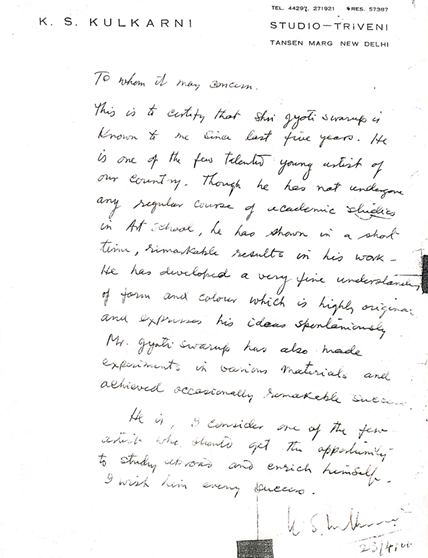 K. S. KULKARNI
TEL. 44297, 271921 RES. 57387
STUDIO-TRIVENI
TANSEN MARG NEW DELHI
To whom it may concern.
This is to certify that Shri Gyoti Swarup is
known to me since last five years. He
is one of the few talented young artist of
our country. Though he has not undergone
any regular course of academic studies
in Art School, he has shown in a short
time, remarkable results in his work -
He has developed a very fine understanding
of form and colour which is highly original
and expresses his ideas spontaniously
Mr. Gyoti Swarup has also made
experiments in various materials and
achieved occasionally remarkable success
He is, I consider one of the few
artist who should get the opportunity
to study abroad and enrich himself.
I wish him every success.
K. S. Kulkarni
23/4/